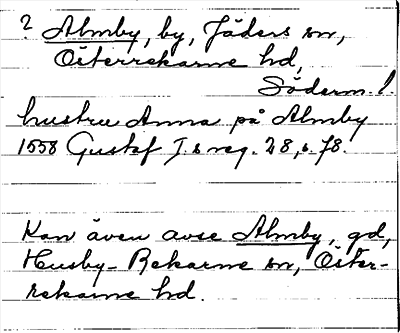 ? Almby, by, Jäders sn,
Österrekarne hd,
Söderm. l.
hustru Anna på Almby
1558 Gustaf I.s reg. 28, s. 78.
Kan även avse Almby, gd,
Husby-Rekarne sn, Öster-
rekarne hd.